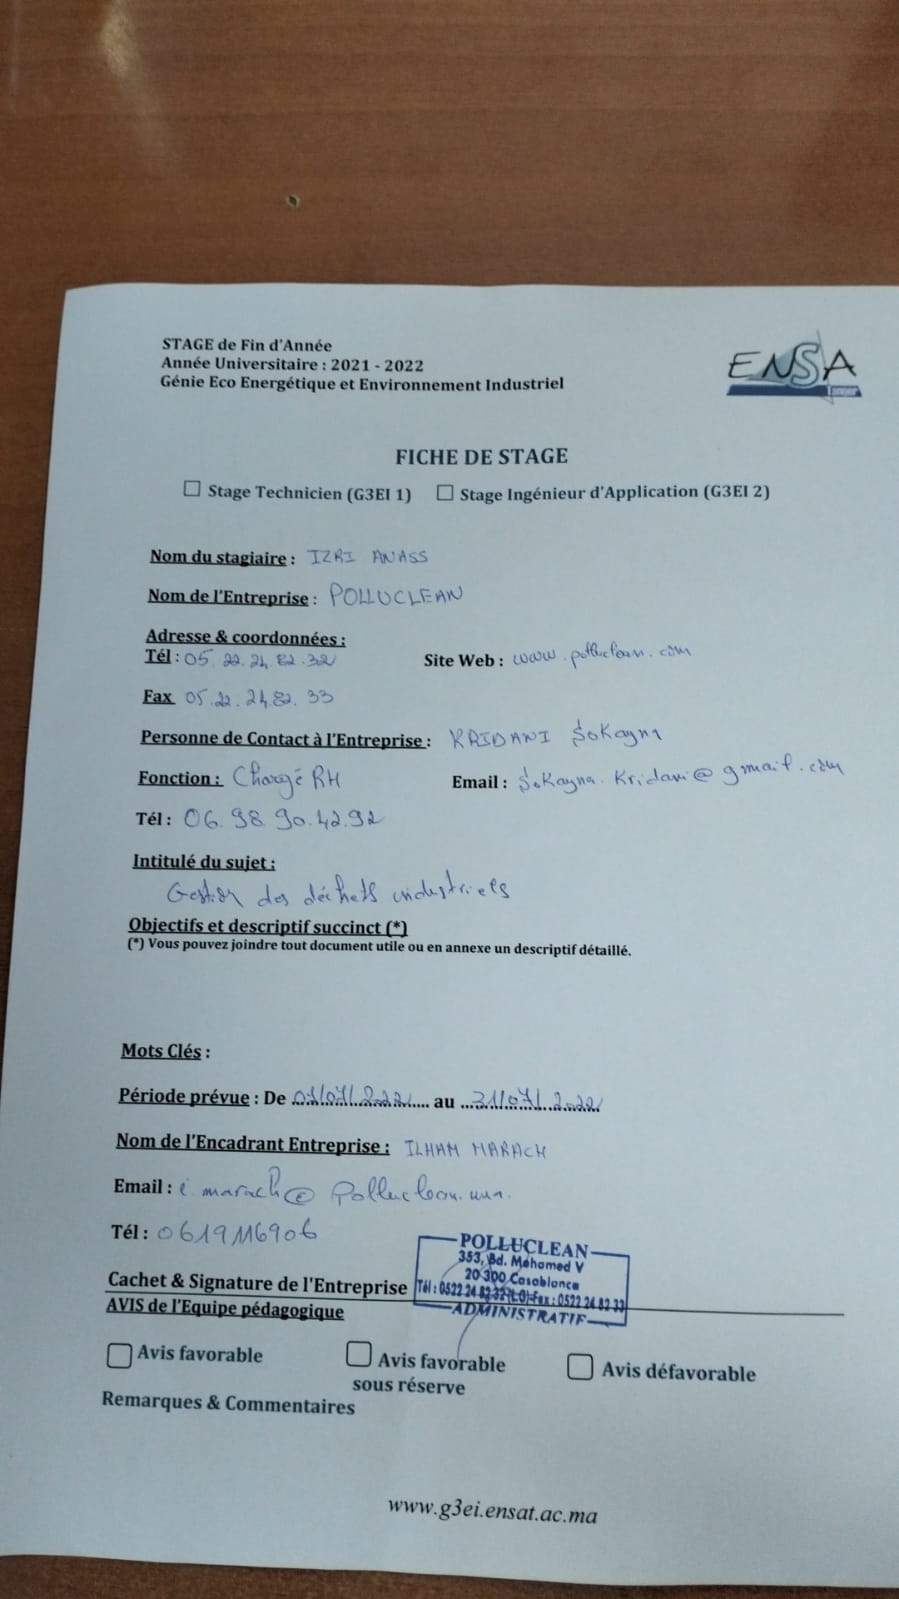 STAGE de Fin d'Année
Année Universitaire : 2021 - 2022
Génie Eco Energétique et Environnement Industriel
ENSA
Tanger
FICHE DE STAGE
☐ Stage Technicien (G3EI 1) ☐ Stage Ingénieur d'Application (G3EI 2)
Nom du stagiaire : IZRI ANASS
Nom de l'Entreprise : POLLUCLEAN
Adresse & coordonnées :
Tél : 05.22.24.82.32 Site Web : www.polluclean.com
Fax 05.22.24.82.33
Personne de Contact à l'Entreprise : KRIDANI Sokayna
Fonction : Chargé RH Email : Sokayna.Kridani@gmail.com
Tél : 06.98.90.42.92
Intitulé du sujet :
Gestion des déchets industriels
Objectifs et descriptif succinct (*)
(*) Vous pouvez joindre tout document utile ou en annexe un descriptif détaillé.
Mots Clés :
Période prévue : De 01/07/2022 au 31/07/2022
Nom de l'Encadrant Entreprise : ILHAM MARACH
Email : i.marach@polluclean.ma.
Tél : 0619116906
POLLUCLEAN
353, Bd. Mohamed V
20 300 Casablanca
Tél : 0522 24 82 32 (L.G) Fax : 0522 24 82 33
ADMINISTRATIF
Cachet & Signature de l'Entreprise
AVIS de l'Equipe pédagogique
☐ Avis favorable ☐ Avis favorable sous réserve ☐ Avis défavorable
Remarques & Commentaires
www.g3ei.ensat.ac.ma